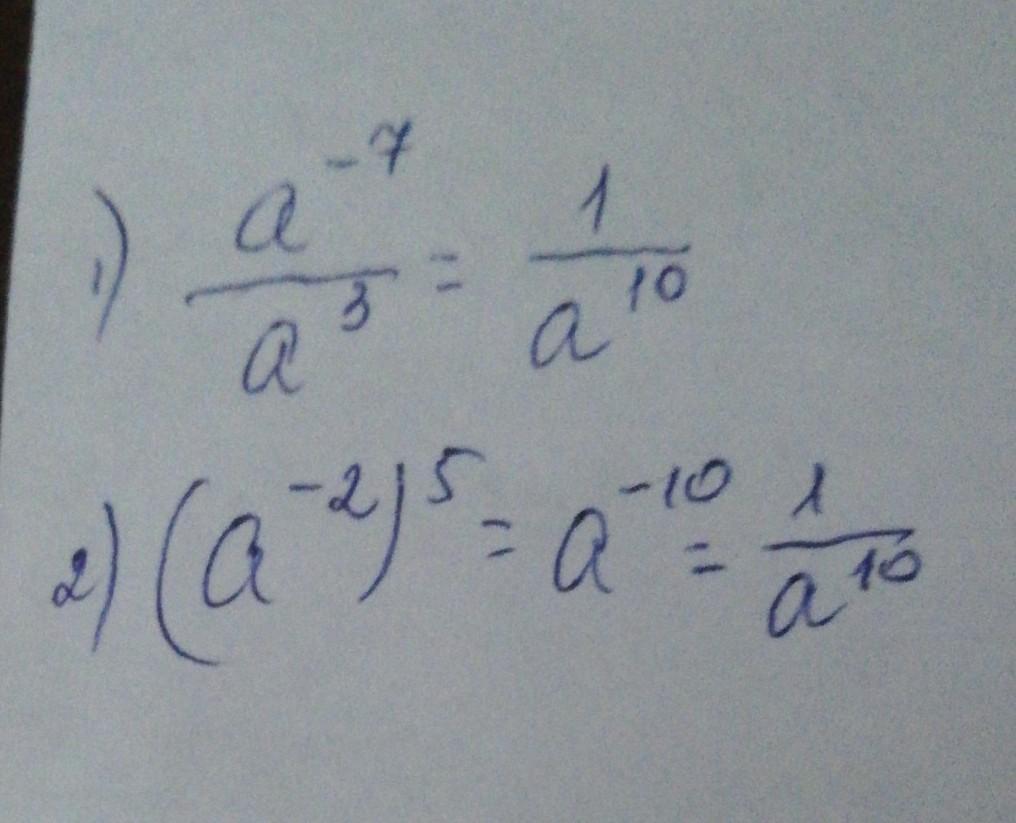 1) \frac{a^{-7}}{a^{3}} = \frac{1}{a^{10}}
2) (a^{-2})^{5} = a^{-10} = \frac{1}{a^{10}}